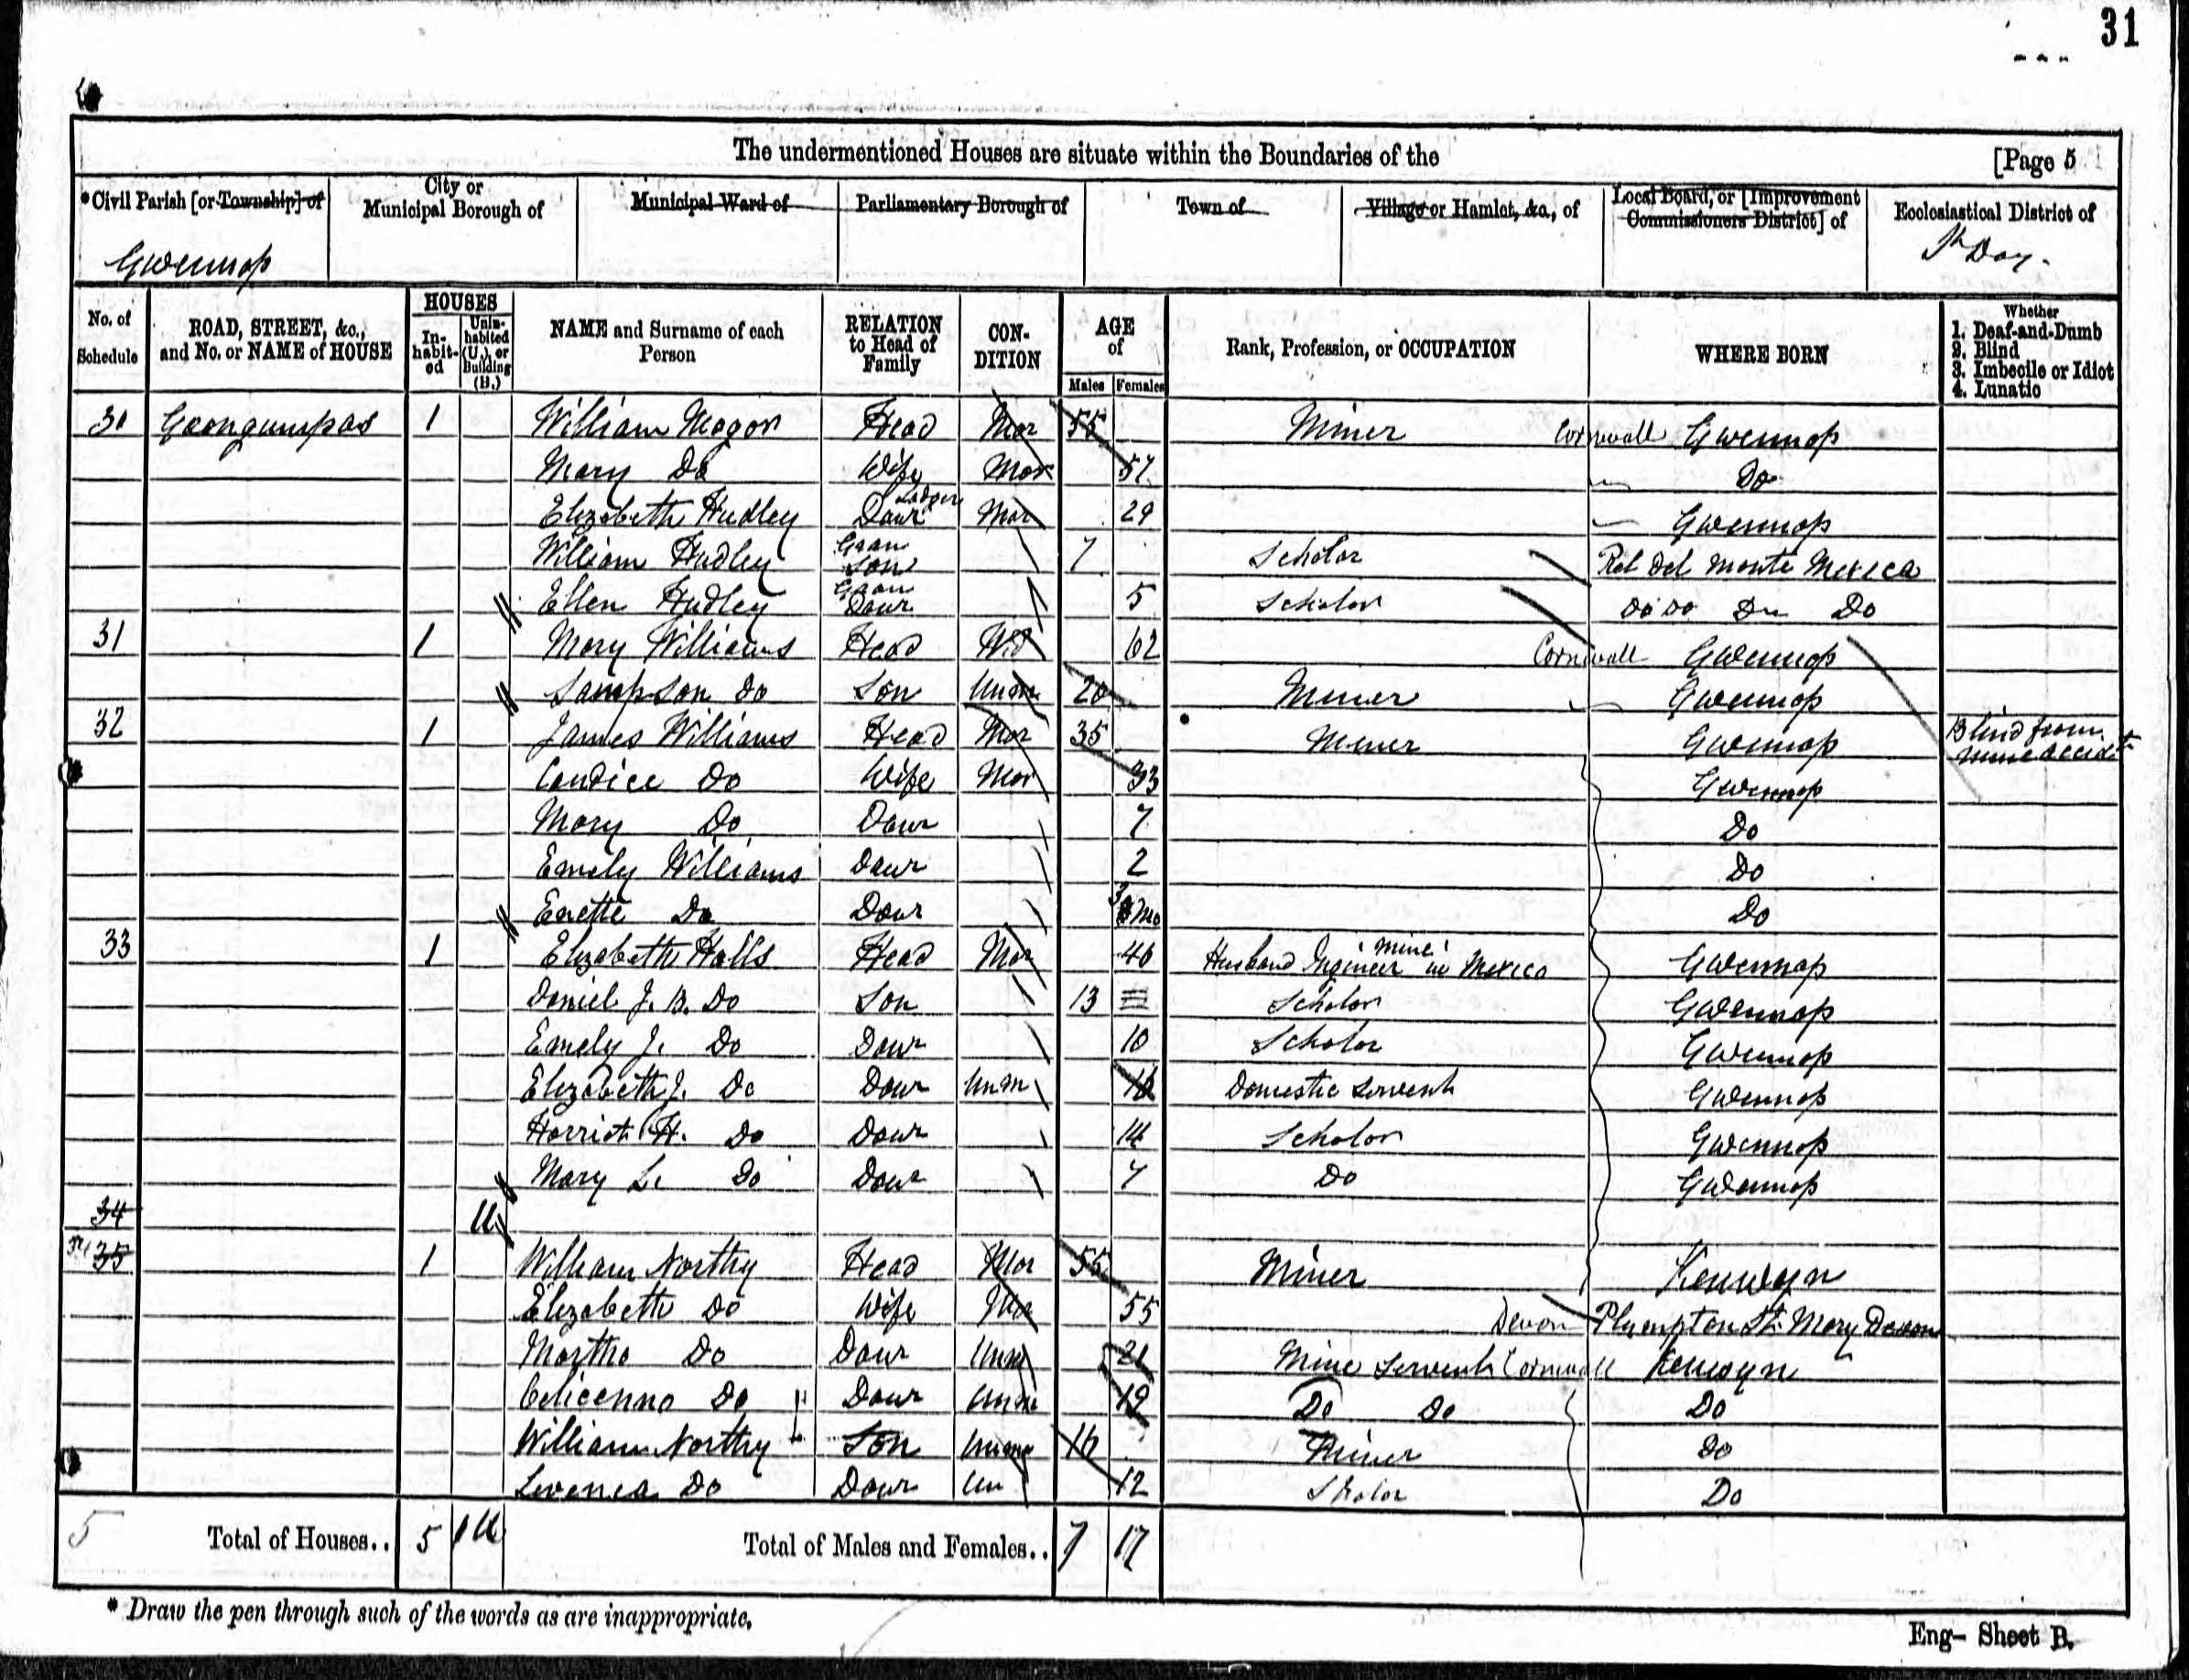 31
The undermentioned Houses are situate within the Boundaries of the [Page 5
*Civil Parish [or Township] of City or Municipal Borough of Municipal Ward of Parliamentary Borough of Town of Village or Hamlet, &c., of Local Board, or [Improvement Commissioners District] of Ecclesiastical District of
Gwennap St Day.
No. of Schedule ROAD, STREET, &c., and No. or NAME of HOUSE HOUSES Inhabited Uninhabited (U.), or Building (B.) NAME and Surname of each Person RELATION to Head of Family CONDITION AGE of Males Females Rank, Profession, or OCCUPATION WHERE BORN Whether 1. Deaf-and-Dumb 2. Blind 3. Imbecile or Idiot 4. Lunatic
30 Goongumpas 1 William Magor Head Mar 55 Miner Cornwall Gwennap
Mary Do Wife Mar 57 Do
Elizabeth Hudley Daur Lodger Mar 29 Gwennap
William Hudley Gran Son 7 Scholar Rel Del Monte Mexico
Ellen Hudley Gran Daur 5 Scholar Do Do Do Do
31 1 Mary Williams Head Wid 62 Cornwall Gwennap
Sampson Do Son Unm 20 Miner Gwennap
32 1 James Williams Head Mar 35 Miner Gwennap Blind from mine accidt
Candice Do Wife Mar 33 Gwennap
Mary Do Daur 7 Do
Emely Williams Daur 2 Do
Do Daur 3 Mo Do
33 1 Elizabeth Halls Head Mar 40 Husband Engineer mine in Mexico Gwennap
Daniel J. B. Do Son 13 Scholar Gwennap
Emely J. Do Daur 10 Scholar Gwennap
Elizabeth J. Do Daur Unm Domestic Servent Gwennap
Harriet H. Do Daur 14 Scholar Gwennap
Mary L. Do Daur 7 Do Gwennap
34 U
34 35 1 William Northy Head Mar 55 Miner Kenwyn
Elizabeth Do Wife Mar 55 Devon Plympton St Mary Devon
Martha Do Daur Unm 21 Mine Servent Cornwall Kenwyn
Do Daur Unm 19 Do Do Do
William Northy Son Unm 16 Miner Do
Do Daur Un 12 Scholar Do
5 Total of Houses.. 5 1 U Total of Males and Females.. 7 17
* Draw the pen through such of the words as are inappropriate.
Eng- Sheet B.